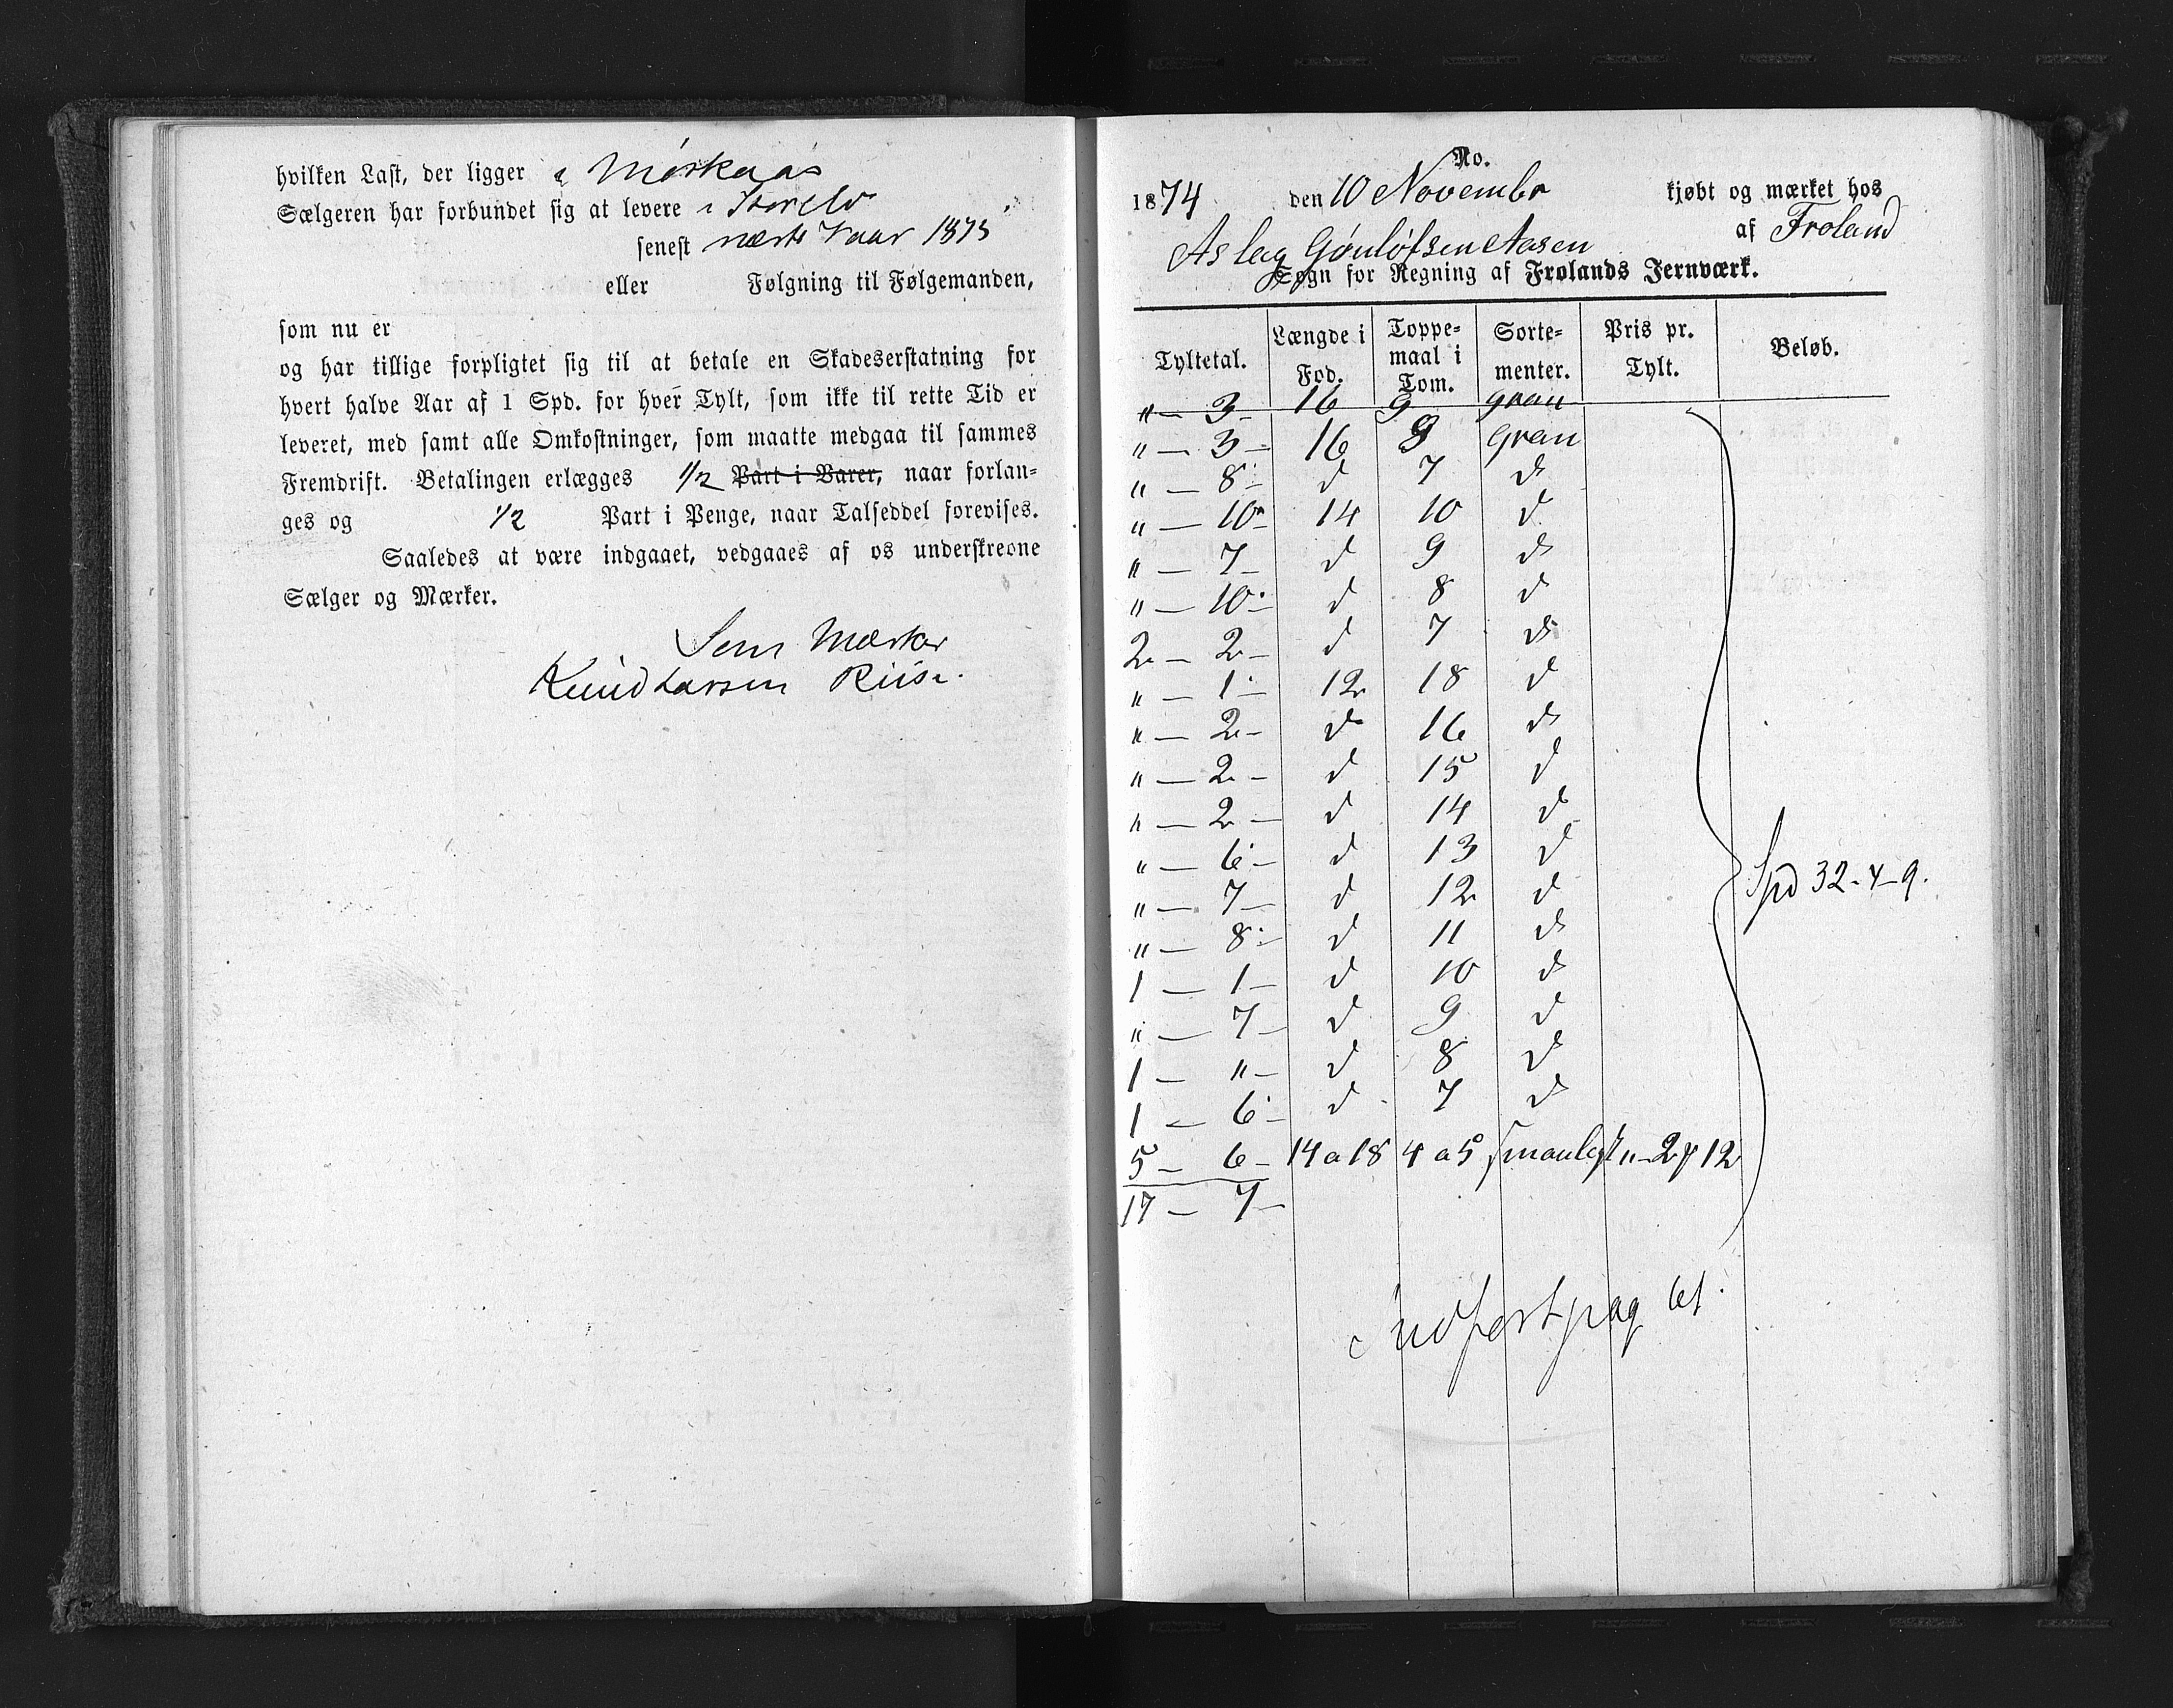 hvilken Last, der ligger i Mørkaas
Sælgeren har forbundet sig at levere i Storelv
senest næste Vaar 1875
eller Følgning til Følgemanden,
som nu er
og har tillige forpligtet sig til at betale en Skadeserstatning for
hvert halve Aar af 1 Spd. for hver Tylt, som ikke til rette Tid er
leveret, med samt alle Omkostninger, som maatte medgaa til sammes
Fremdrift. Betalingen erlægges 1/2 Part i Varer, naar forlan-
ges og 1/2 Part i Penge, naar Talseddel forevises.
Saaledes at være indgaaet, vedgaaes af os underskrevne
Sælger og Mærker.
Som Mærker
Knud Larsen Riise.
No.
1874 den 10 Novembr kjøbt og mærket hos
Aslag Gønløfsen Aasen af Froland
Sogn for Regning af Frolands Jernværk.
Tyltetal. Længde i Fod. Toppe-maal i Tom. Sorte-menter. Pris pr. Tylt. Beløb.
" — 3 — 16 9 gran
" — 3 — 16 9 gran
" — 8 — d 7 d
" — 10 — 14 10 d
" — 7 — d 9 d
" — 10 — d 8 d
2 — 2 — d 7 d
" — 1 — 12 18 d
" — 2 — d 16 d
" — 2 — d 15 d
" — 2 — d 14 d
" — 6 — d 13 d
" — 7 — d 12 d
" — 8 — d 11 d
1 — 1 — d 10 d
" — 7 — d 9 d
1 — " — d 8 d
1 — 6 — d 7 d
5 — 6 — 14 a 18 4 a 5 smaalast " - 2 # 12
17 — 7 —
Spd 32-4-9.
Indført pag 61.